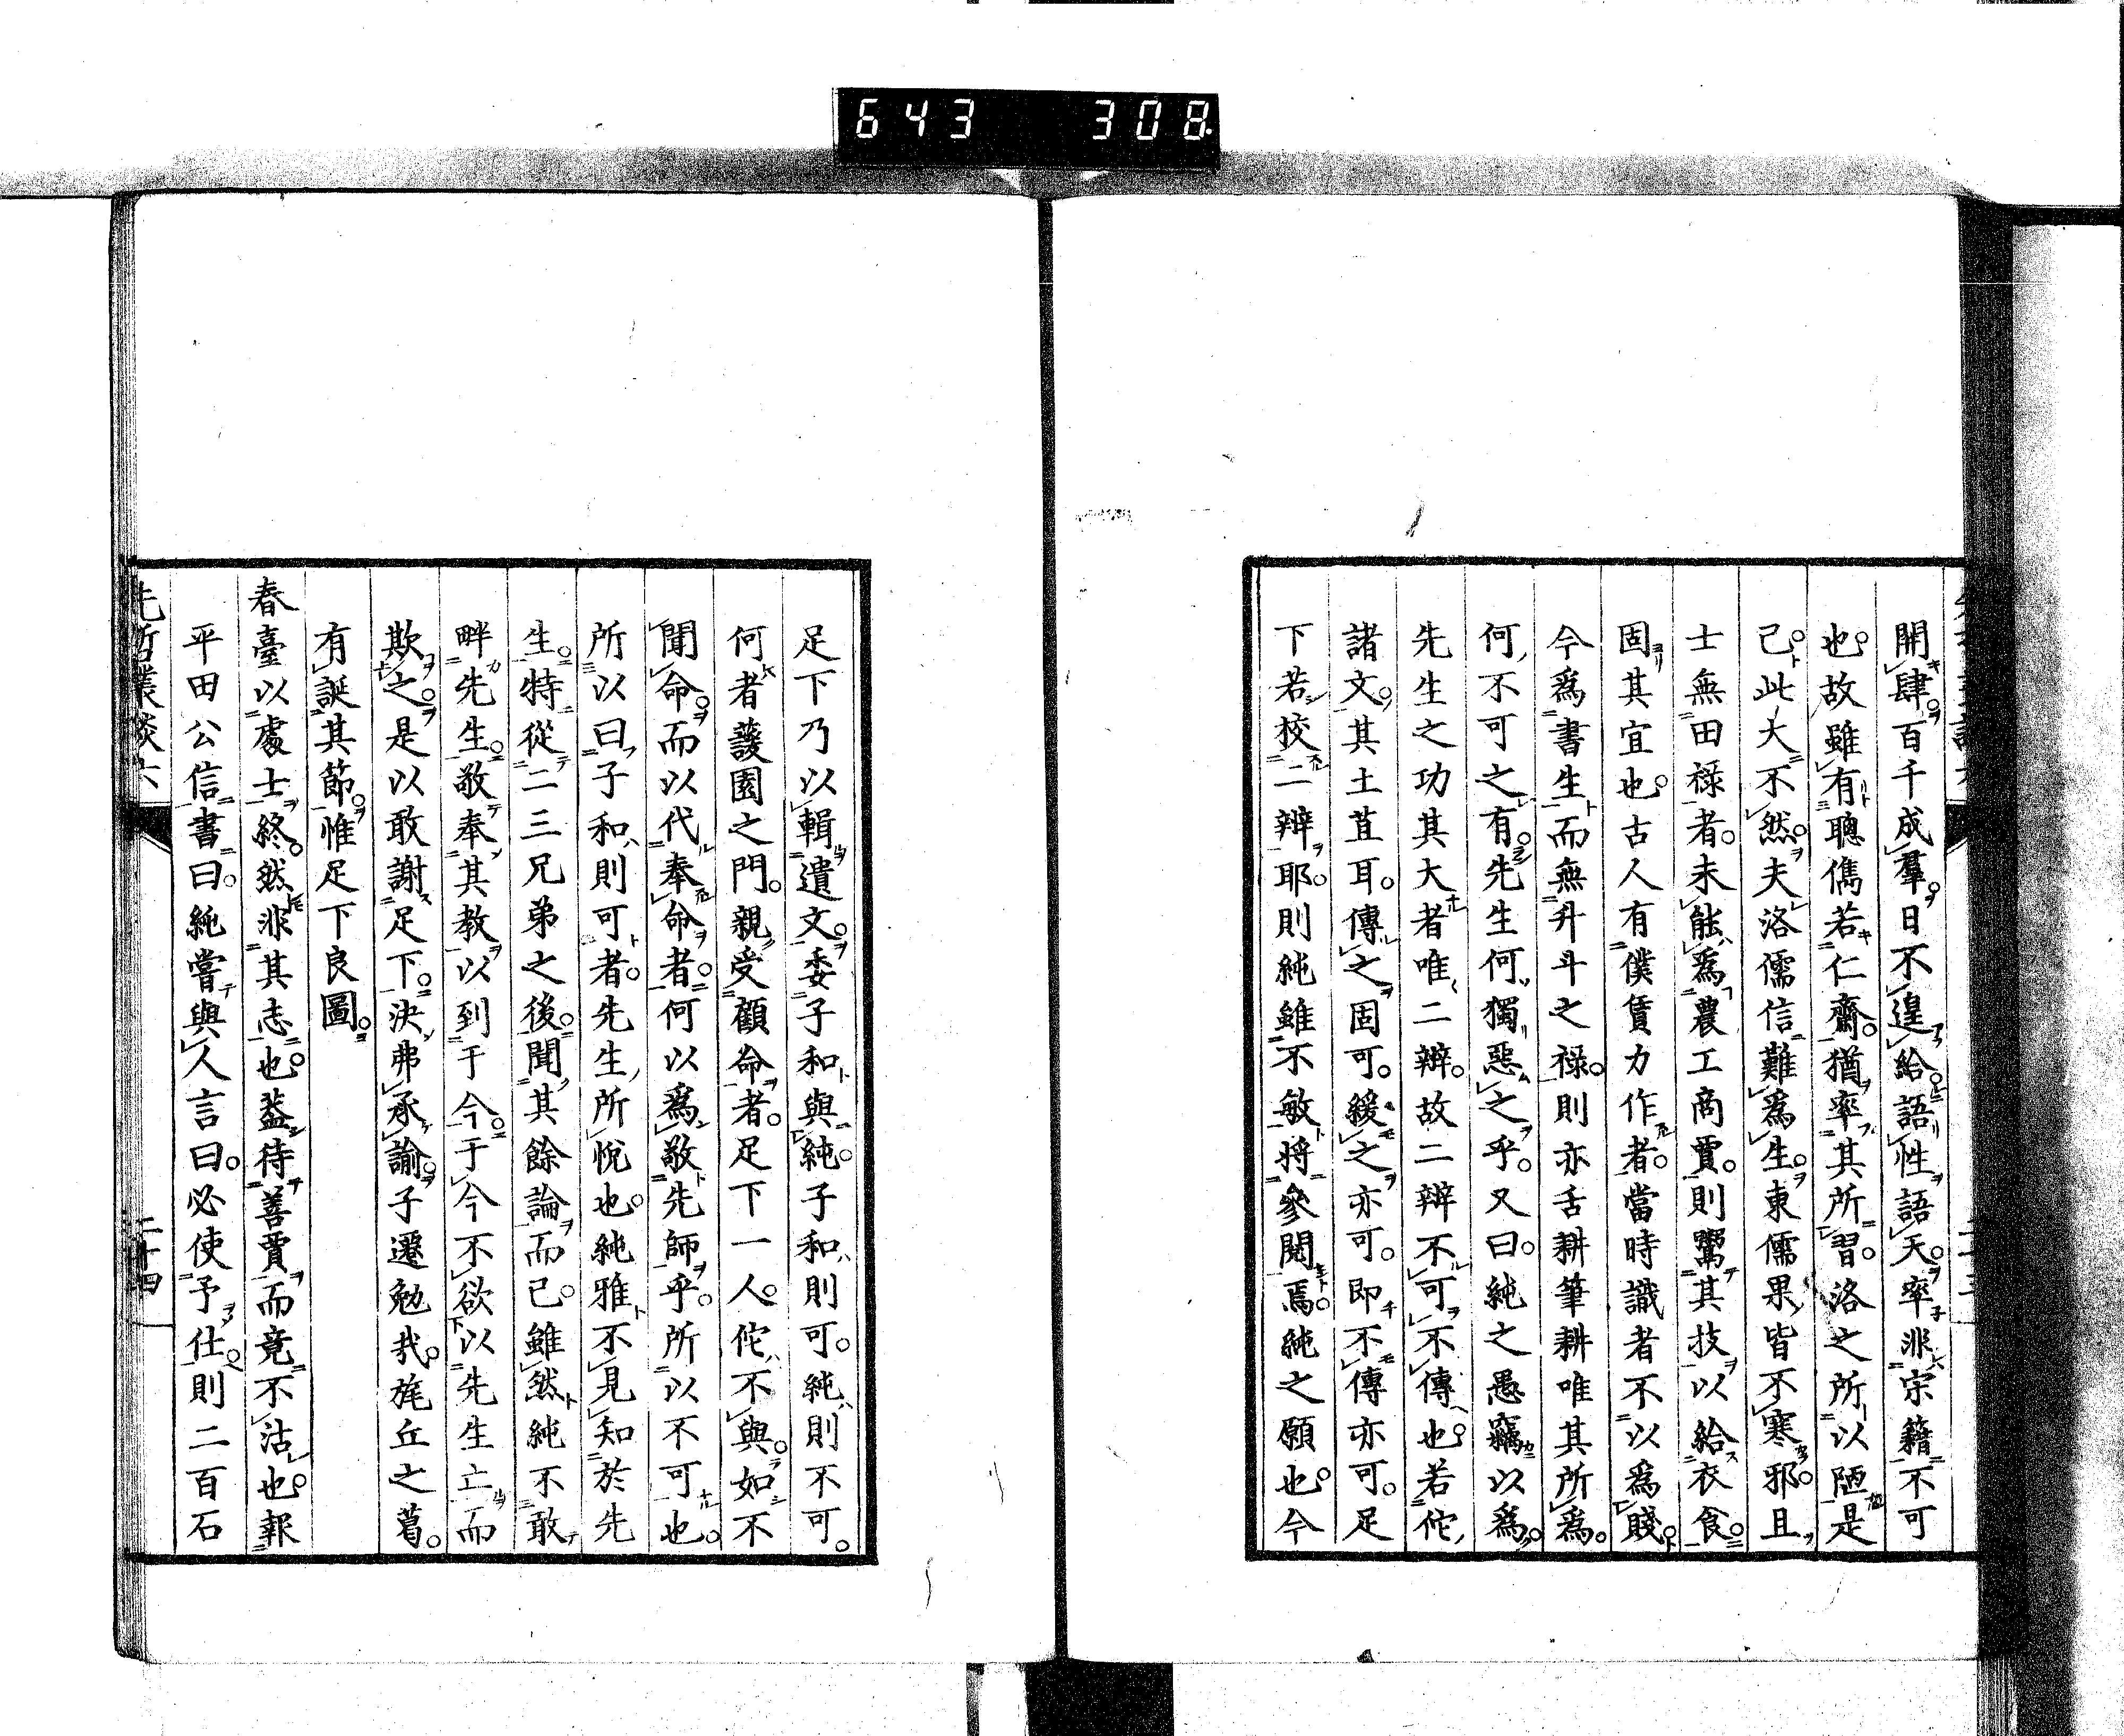 643 308
開肆。百千成羣。日不遑給。語性語天。率非宗籍不可
也。故雖有聰儁若仁齋。猶率其所習。洛之所以陋是
已。此大不然。夫洛儒信難爲生。東儒果皆不寒邪。且
士無田祿者。未能爲農工商賈。則鬻其技以給衣食。
固其宜也。古人有僕賃力作者。當時識者不以爲賤。
今爲書生而無升斗之祿。則亦舌耕筆耕唯其所爲。
何不可之有。先生何獨惡之乎。又曰。純之愚竊以爲。
先生之功其大者唯二辨。故二辨不可不傳也。若佗
諸文。其土苴耳。傳之固可。緩之亦可。即不傳亦可。足
下若校二辨耶。則純雖不敏將參閱焉。純之願也。今
足下乃以輯遺文。委子和與純。子和則可。純則不可。
何者蘐園之門。親受顧命者。足下一人。佗不與。如不
聞命。而以代奉命者。何以爲敬先師乎。所以不可也。
所以曰子和則可者。先生所悅也。純雅不見知於先
生。特從二三兄弟之後。聞其餘論而已。雖然純不敢
畔先生。敬奉其教以到于今。于今不欲以先生亡而
欺之。是以敢謝足下。決弗承諭。子遷勉哉。旄丘之葛。
有誕其節。惟足下良圖。
春臺以處士終。然非其志也。蓋待善賈而竟不沽也。報
平田公信書曰。純嘗與人言曰。必使予仕。則二百石
先哲叢談六
二十四